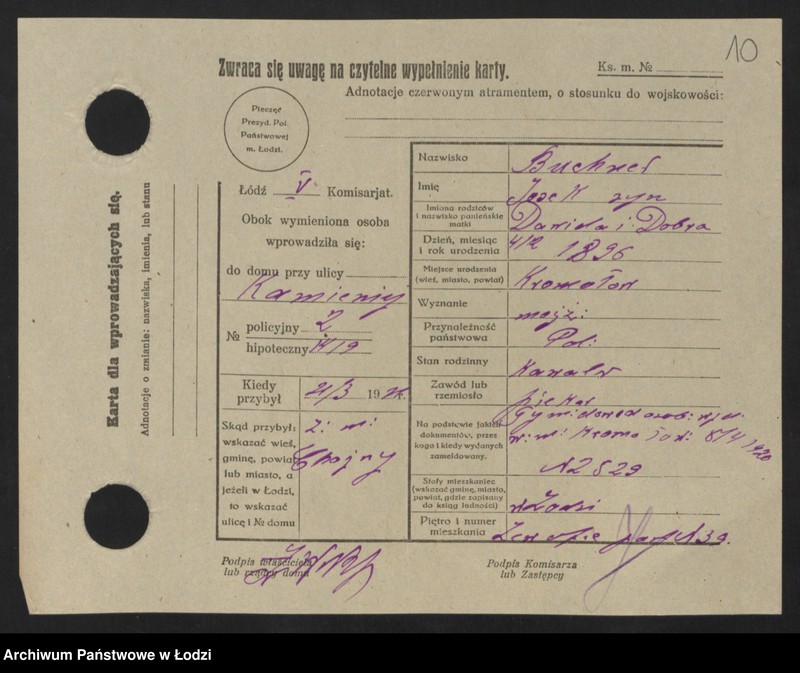 10
Zwraca się uwagę na czytelne wypełnienie karty.
Ks. m. №
Adnotacje czerwonym atramentem, o stosunku do wojskowości:
Pieczęć
Prezyd. Pol.
Państwowej
m. Łodzi.
Karta dla wprowadzających się.
Adnotacje o zmianie: nazwiska, imienia, lub stanu
Łódź V Komisarjat.
Obok wymieniona osoba
wprowadziła się:
do domu przy ulicy
Kamiennej
№ policyjny 2
hipoteczny
Kiedy
przybył 21/3 192
Skąd przybył:
wskazać wieś,
gminę, powiat
lub miasto, a
jeżeli w Łodzi,
to wskazać
ulicę i № domu
z. m.
Chojny
Nazwisko Buchner
Imię Josek syn
Imiona rodziców
i nazwisko panieńskie
matki
Dawida i Dobra
Dzień, miesiąc
i rok urodzenia
4/2 1896
Miejsce urodzenia
(wieś, miasto, powiat)
Kromołow
Wyznanie mojż.
Przynależność
państwowa
Pol.
Stan rodzinny Kawaler
Zawód lub
rzemiosło
Na podstawie jakich
dokumentów, przez
kogo i kiedy wydanych
zameldowany.
Tym. dowod osob. wyd.
8/4 1920
№ 2829
Stały mieszkaniec
(wskazać gminę, miasto,
powiat, gdzie zapisany
do ksiąg ludności)
w Łodzi
Piętro i numer
mieszkania
39.
Podpis właściciela
lub rządcy domu
Podpis Komisarza
lub Zastępcy
Archiwum Państwowe w Łodzi